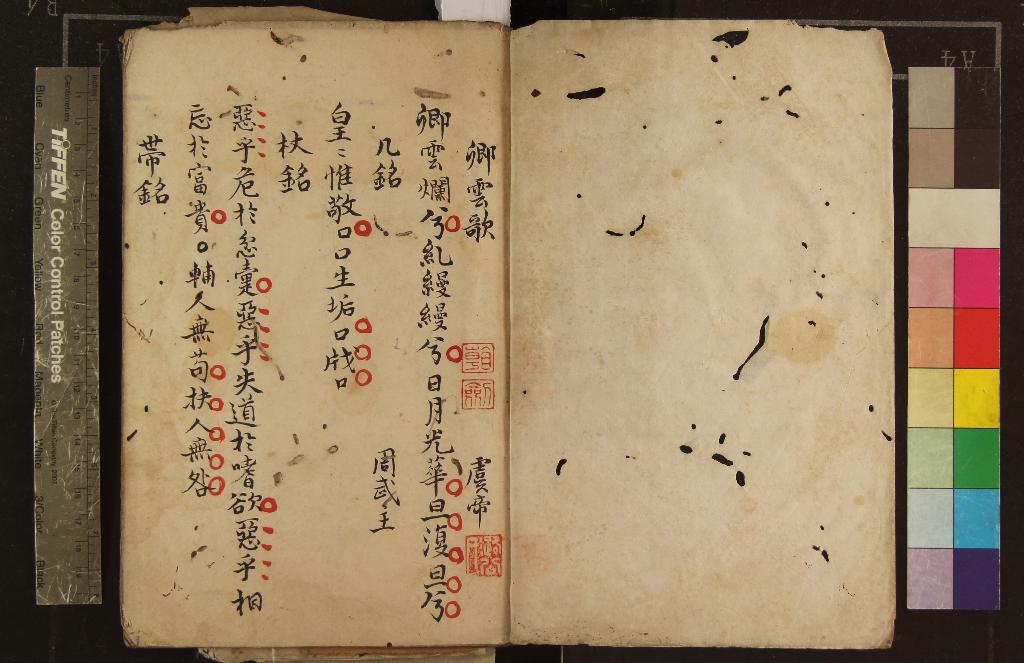 卿雲歌 虞帝
卿雲爛兮糺縵縵兮日月光華旦復旦兮
几銘 周武王
皇〻惟敬口口生垢口戕口
杖銘
惡乎危於忿疐惡乎失道於嗜欲惡乎相
忘於富貴。輔人無苟扶人無咎
帶銘
A4
TIFFEN Color Control Patches
Centimetres
Blue
Cyan
Green
Yellow
Red
Magenta
White
3/Color
Black